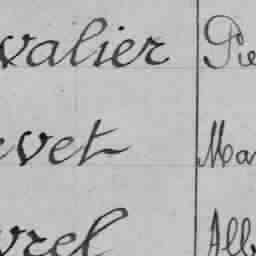 valier Pie
vet Ma
vrel Alb